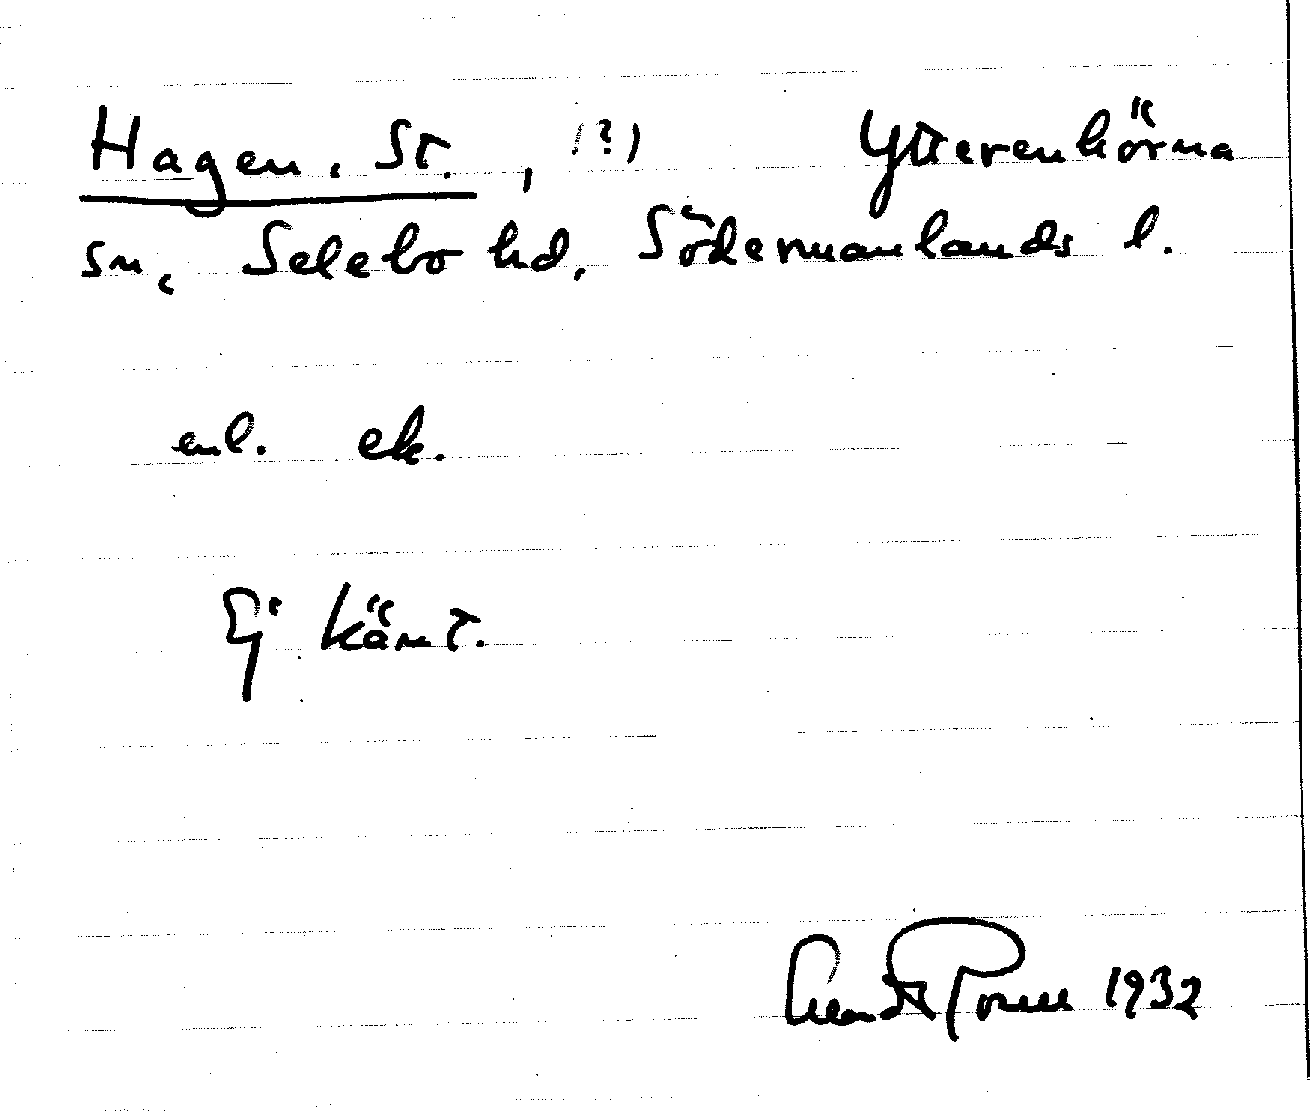 Hagen, St., (?) Ytterenhörna
sn, Selebo hd, Södermanlands l.
enl. ek.
Ej känt.
1932